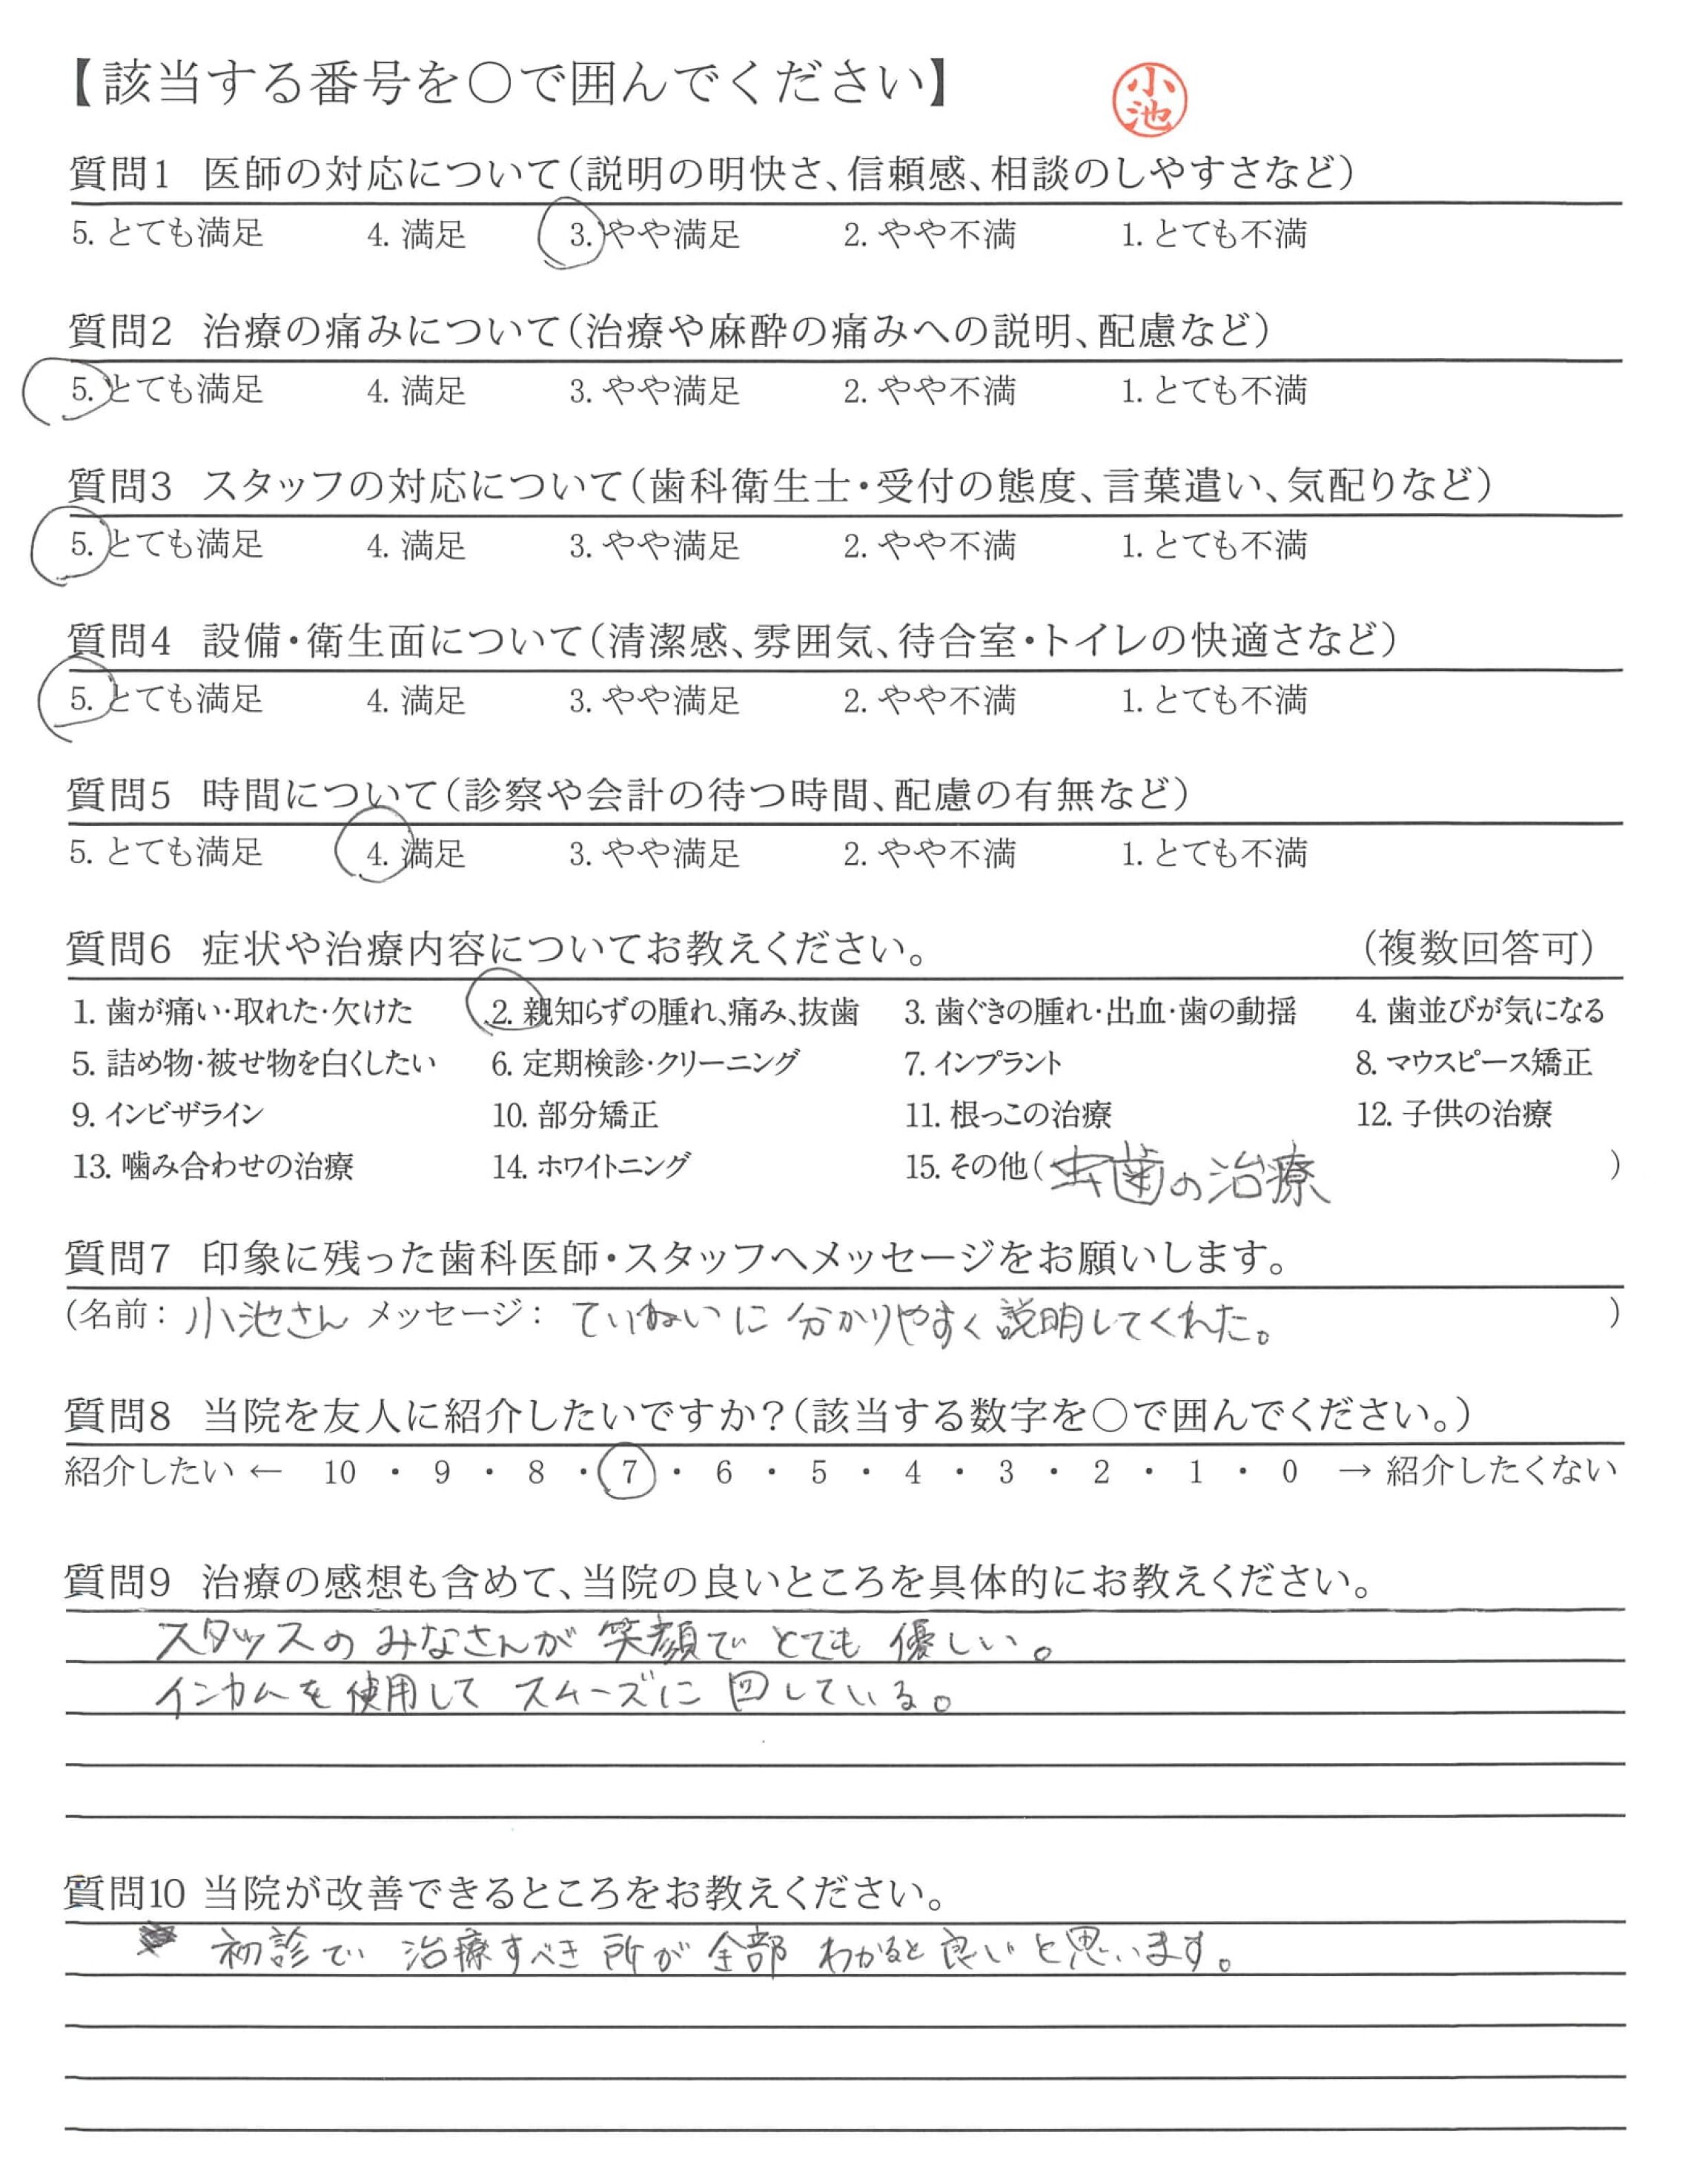 【該当する番号を○で囲んでください】
小池
質問1 医師の対応について(説明の明快さ、信頼感、相談のしやすさなど)
5. とても満足 4. 満足 3. やや満足 2. やや不満 1. とても不満
質問2 治療の痛みについて(治療や麻酔の痛みへの説明、配慮など)
5. とても満足 4. 満足 3. やや満足 2. やや不満 1. とても不満
質問3 スタッフの対応について(歯科衛生士・受付の態度、言葉遣い、気配りなど)
5. とても満足 4. 満足 3. やや満足 2. やや不満 1. とても不満
質問4 設備・衛生面について(清潔感、雰囲気、待合室・トイレの快適さなど)
5. とても満足 4. 満足 3. やや満足 2. やや不満 1. とても不満
質問5 時間について(診察や会計の待つ時間、配慮の有無など)
5. とても満足 4. 満足 3. やや満足 2. やや不満 1. とても不満
質問6 症状や治療内容についてお教えください。 (複数回答可)
1. 歯が痛い・取れた・欠けた 2. 親知らずの腫れ、痛み、抜歯 3. 歯ぐきの腫れ・出血・歯の動揺 4. 歯並びが気になる
5. 詰め物・被せ物を白くしたい 6. 定期検診・クリーニング 7. インプラント 8. マウスピース矯正
9. インビザライン 10. 部分矯正 11. 根っこの治療 12. 子供の治療
13. 噛み合わせの治療 14. ホワイトニング 15. その他(虫歯の治療)
質問7 印象に残った歯科医師・スタッフへメッセージをお願いします。
(名前: 小池さん メッセージ: ていねいに 分かりやすく 説明してくれた。)
質問8 当院を友人に紹介したいですか?(該当する数字を○で囲んでください。)
紹介したい ← 10 ・ 9 ・ 8 ・ 7 ・ 6 ・ 5 ・ 4 ・ 3 ・ 2 ・ 1 ・ 0 → 紹介したくない
質問9 治療の感想も含めて、当院の良いところを具体的にお教えください。
スタッスの みなさんが 笑顔で とても 優しい。
インカムを使用して スムーズに 回している。
質問10 当院が改善できるところをお教えください。
初診で 治療すべき 所が 全部 わかると 良いと思います。